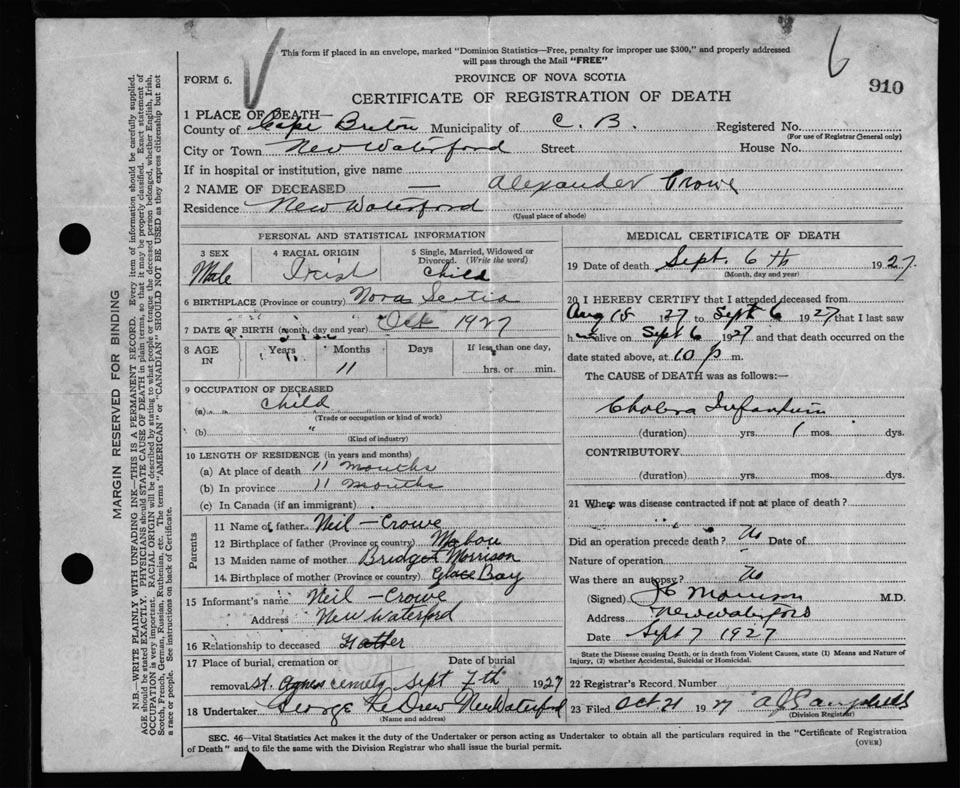 This form if placed in an envelope, marked "Dominion Statistics—Free, penalty for improper use $300," and properly addressed
will pass through the Mail "FREE"
6
910
FORM 6.
PROVINCE OF NOVA SCOTIA
CERTIFICATE OF REGISTRATION OF DEATH
1 PLACE OF DEATH—
County of Cape Breton Municipality of C. B. Registered No.
(For use of Registrar General only)
City or Town New Waterford Street House No.
If in hospital or institution, give name
2 NAME OF DECEASED — Alexander Crowe
Residence New Waterford
(Usual place of abode)
PERSONAL AND STATISTICAL INFORMATION
3 SEX Male
4 RACIAL ORIGIN Irish
5 Single, Married, Widowed or
Divorced. (Write the word)
Child
6 BIRTHPLACE (Province or country) Nova Scotia
7 DATE OF BIRTH (month, day and year) Oct 1927
8 AGE IN Years Months 11 Days If less than one day,
hrs. or min.
9 OCCUPATION OF DECEASED
(a) Child
(Trade or occupation or kind of work)
(b) "
(Kind of industry)
10 LENGTH OF RESIDENCE (in years and months)
(a) At place of death 11 months
(b) In province 11 months
(c) In Canada (if an immigrant)
Parents
11 Name of father Neil — Crowe
12 Birthplace of father (Province or country) Mabou
13 Maiden name of mother Bridget Morrison
14. Birthplace of mother (Province or country) Glace Bay
15 Informant's name Neil — Crowe
Address New Waterford
16 Relationship to deceased Father
17 Place of burial, cremation or Date of burial
removal St. Agnes cemety Sept 7th 1927
18 Undertaker George LeDrew New Waterford
(Name and address)
MEDICAL CERTIFICATE OF DEATH
19 Date of death Sept. 6th 1927
(Month, day and year)
20 I HEREBY CERTIFY that I attended deceased from
Aug 18 1927 to Sept 6 1927 that I last saw
h alive on Sept 6 1927 and that death occurred on the
date stated above, at 10 p m.
The CAUSE of DEATH was as follows:—
Cholera Infantum
(duration) yrs. 1 mos. dys.
CONTRIBUTORY
(duration) yrs. mos. dys.
21 Where was disease contracted if not at place of death?
Did an operation precede death? No Date of
Nature of operation
Was there an autopsy? No
(Signed) Morrison M.D.
Address New Waterford
Date Sept 7 1927
State the Disease causing Death, or in death from Violent Causes, state (1) Means and Nature of
Injury, (2) whether Accidental, Suicidal or Homicidal.
22 Registrar's Record Number
23 Filed Oct 21 1927 Campbell
(Division Registrar)
SEC. 46—Vital Statistics Act makes it the duty of the Undertaker or person acting as Undertaker to obtain all the particulars required in the "Certificate of Registration
of Death" and to file the same with the Division Registrar who shall issue the burial permit.
(OVER)
MARGIN RESERVED FOR BINDING
N.B.—WRITE PLAINLY WITH UNFADING INK—THIS IS A PERMANENT RECORD. Every item of information should be carefully supplied.
AGE should be stated EXACTLY. PHYSICIANS should STATE CAUSE OF DEATH in plain terms, so that it may be properly classified. Exact statement of
OCCUPATION is very important. RACIAL ORIGIN will be described by stating to what people or tongue the deceased person belonged, whether English, Irish,
Scotch, French, German, Russian, Ruthenian, etc. The terms "AMERICAN" or "CANADIAN" SHOULD NOT BE USED as they express citizenship but not
a race or people. See instructions on back of Certificate.